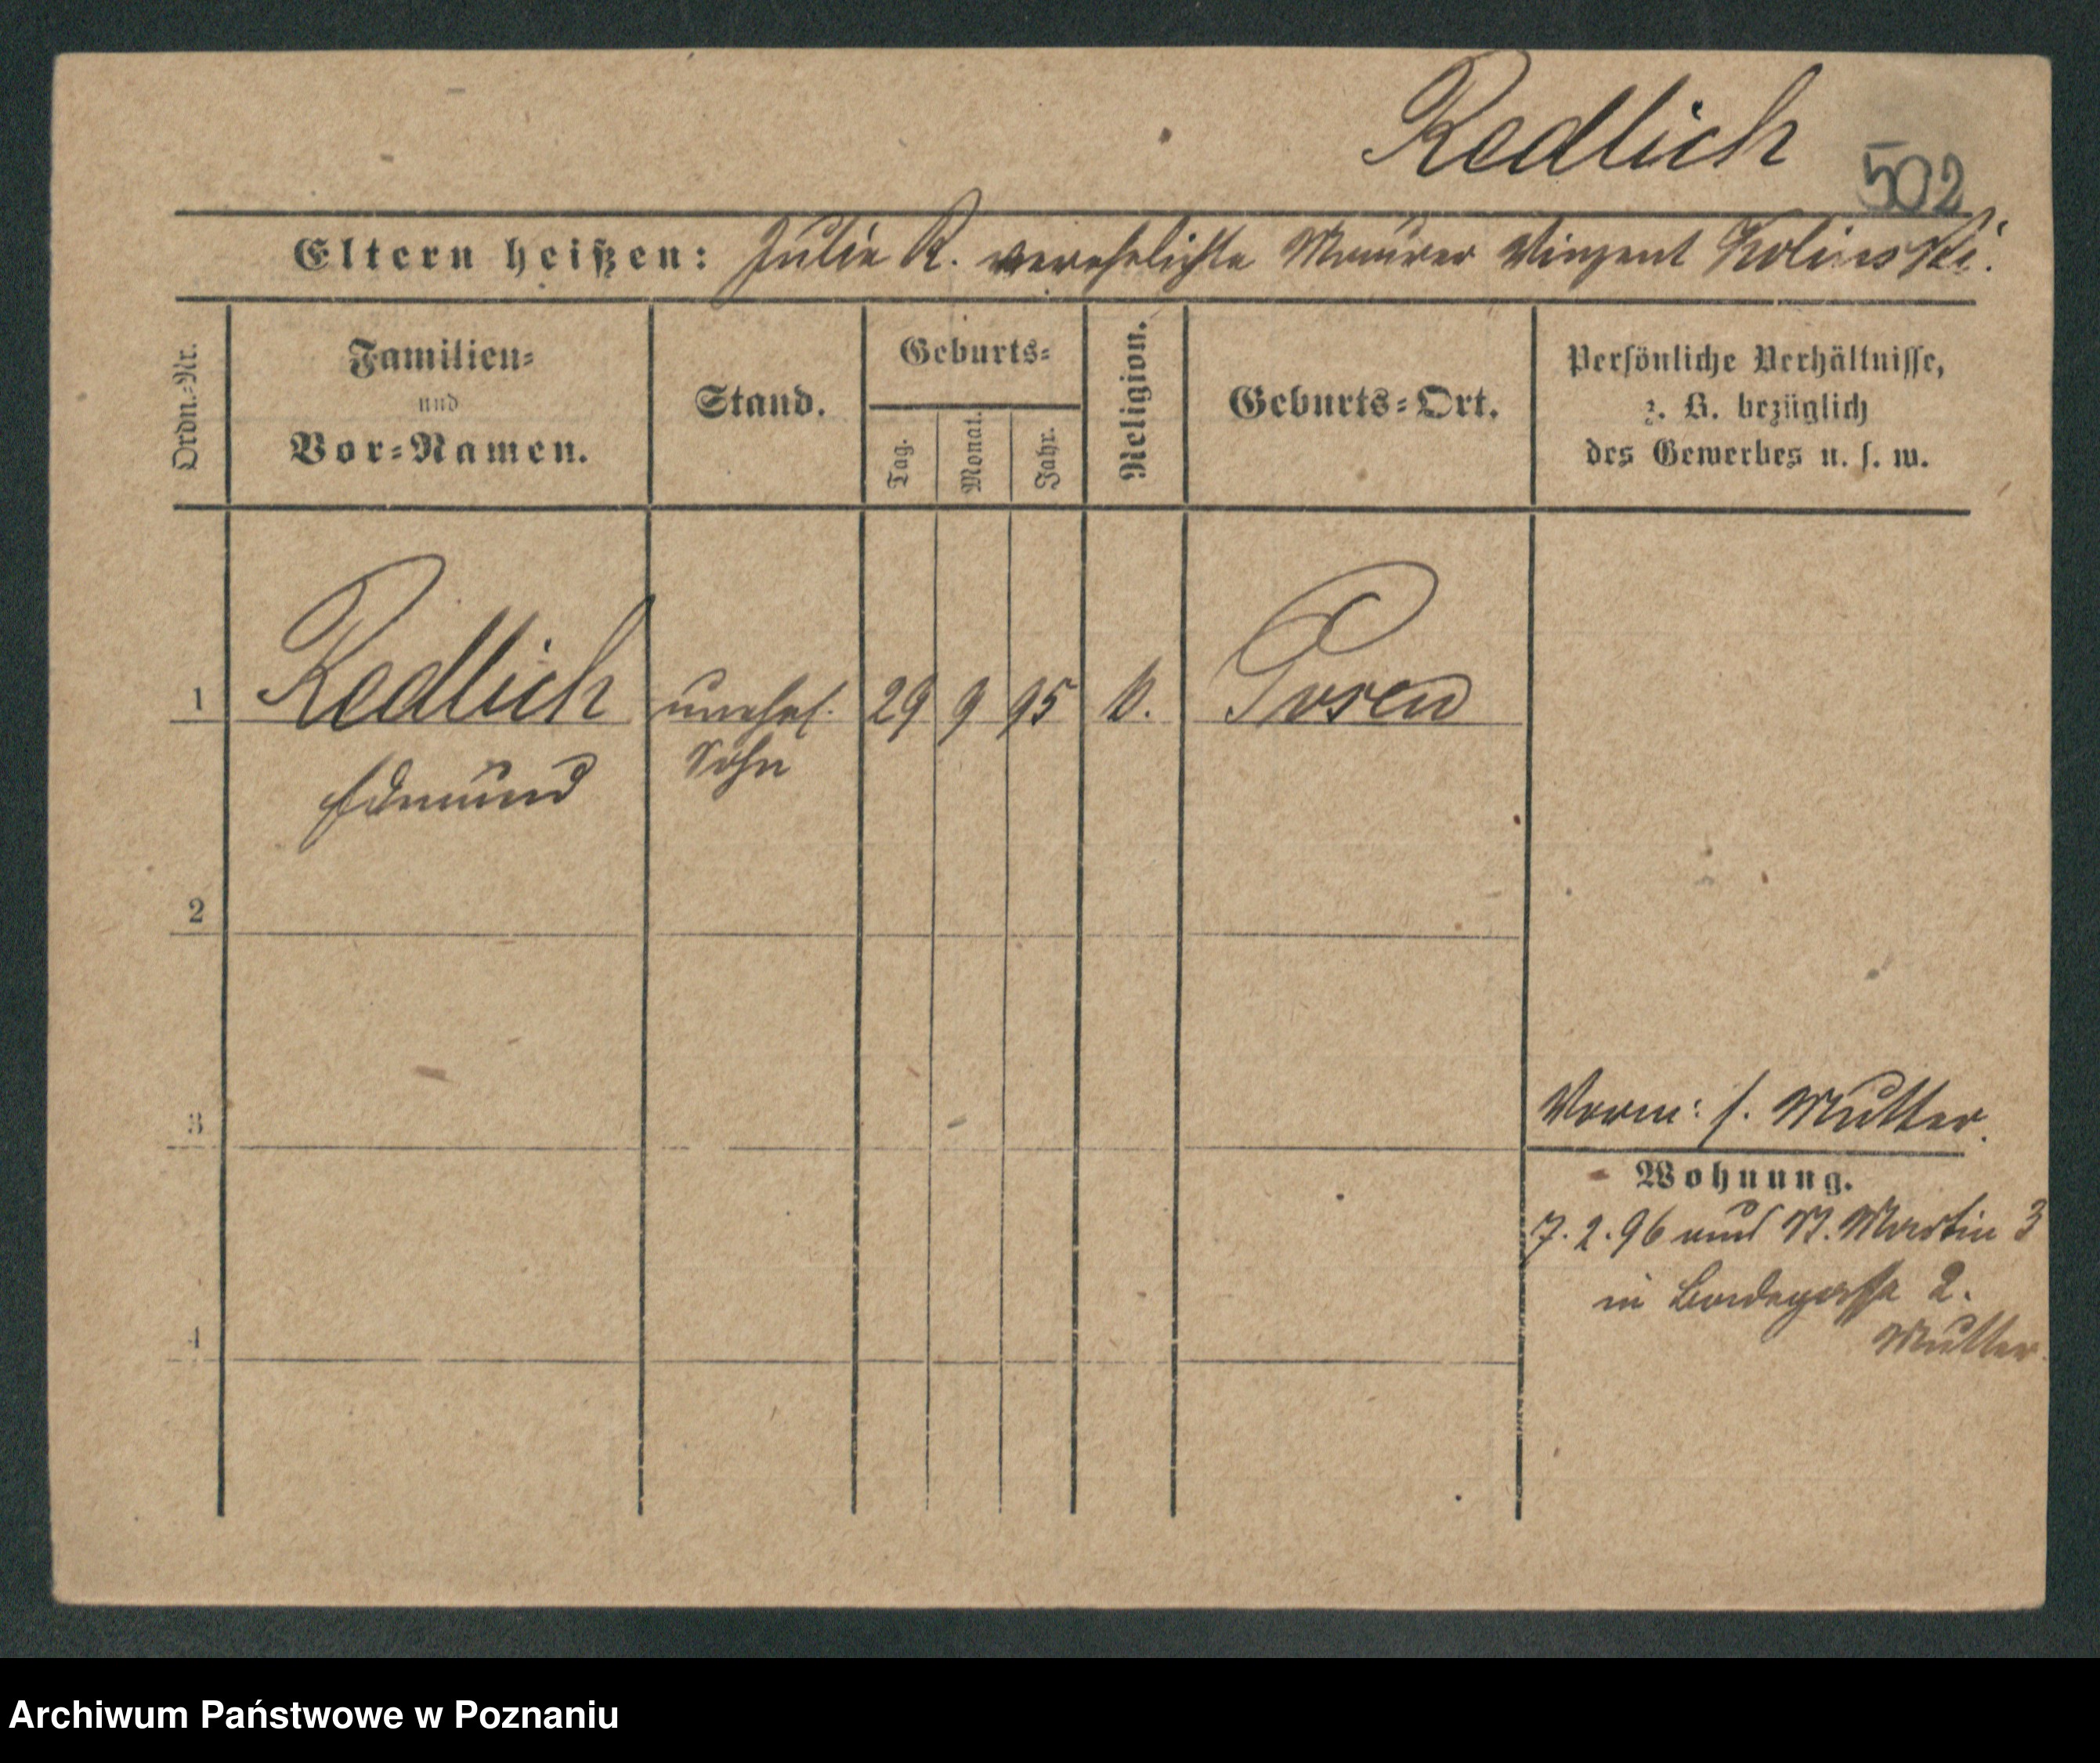 Redlich
502
Eltern heißen: Julie R. verehelichte Maurer Vinzent Kolinski.
Ordn.-Nr.
Familien-
und
Vor-Namen.
Stand.
Geburts-
Tag.
Monat.
Jahr.
Religion.
Geburts-Ort.
Persönliche Verhältnisse,
z. B. bezüglich
des Gewerbes u. s. w.
1 Redlich unehel. 29 9 95 k. Posen
Edmund Sohn
2
3
Vorm: s. Mutter.
Wohnung.
7.2.96 aus St. Martin 3
in 2.
4
Mutter.
Archiwum Państwowe w Poznaniu